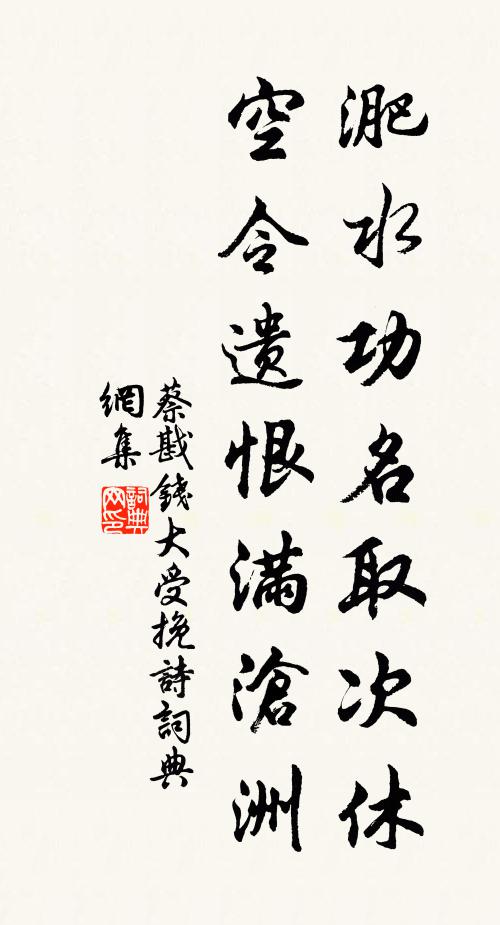 淝水功名取次休
空令遗恨满滄洲
蔡戡錢大受挽詩詞典
網集
詞典
网印